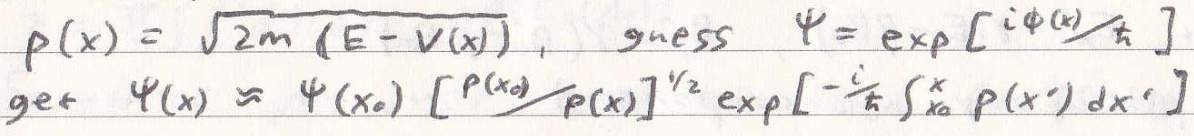 p(x) = √(2m (E - V(x))), guess Ψ = exp[iϕ(x)/ħ]
get Ψ(x) ≈ Ψ(x₀) [p(x₀)/p(x)]^1/2 exp[-i/ħ ∫_x₀^x p(x') dx']